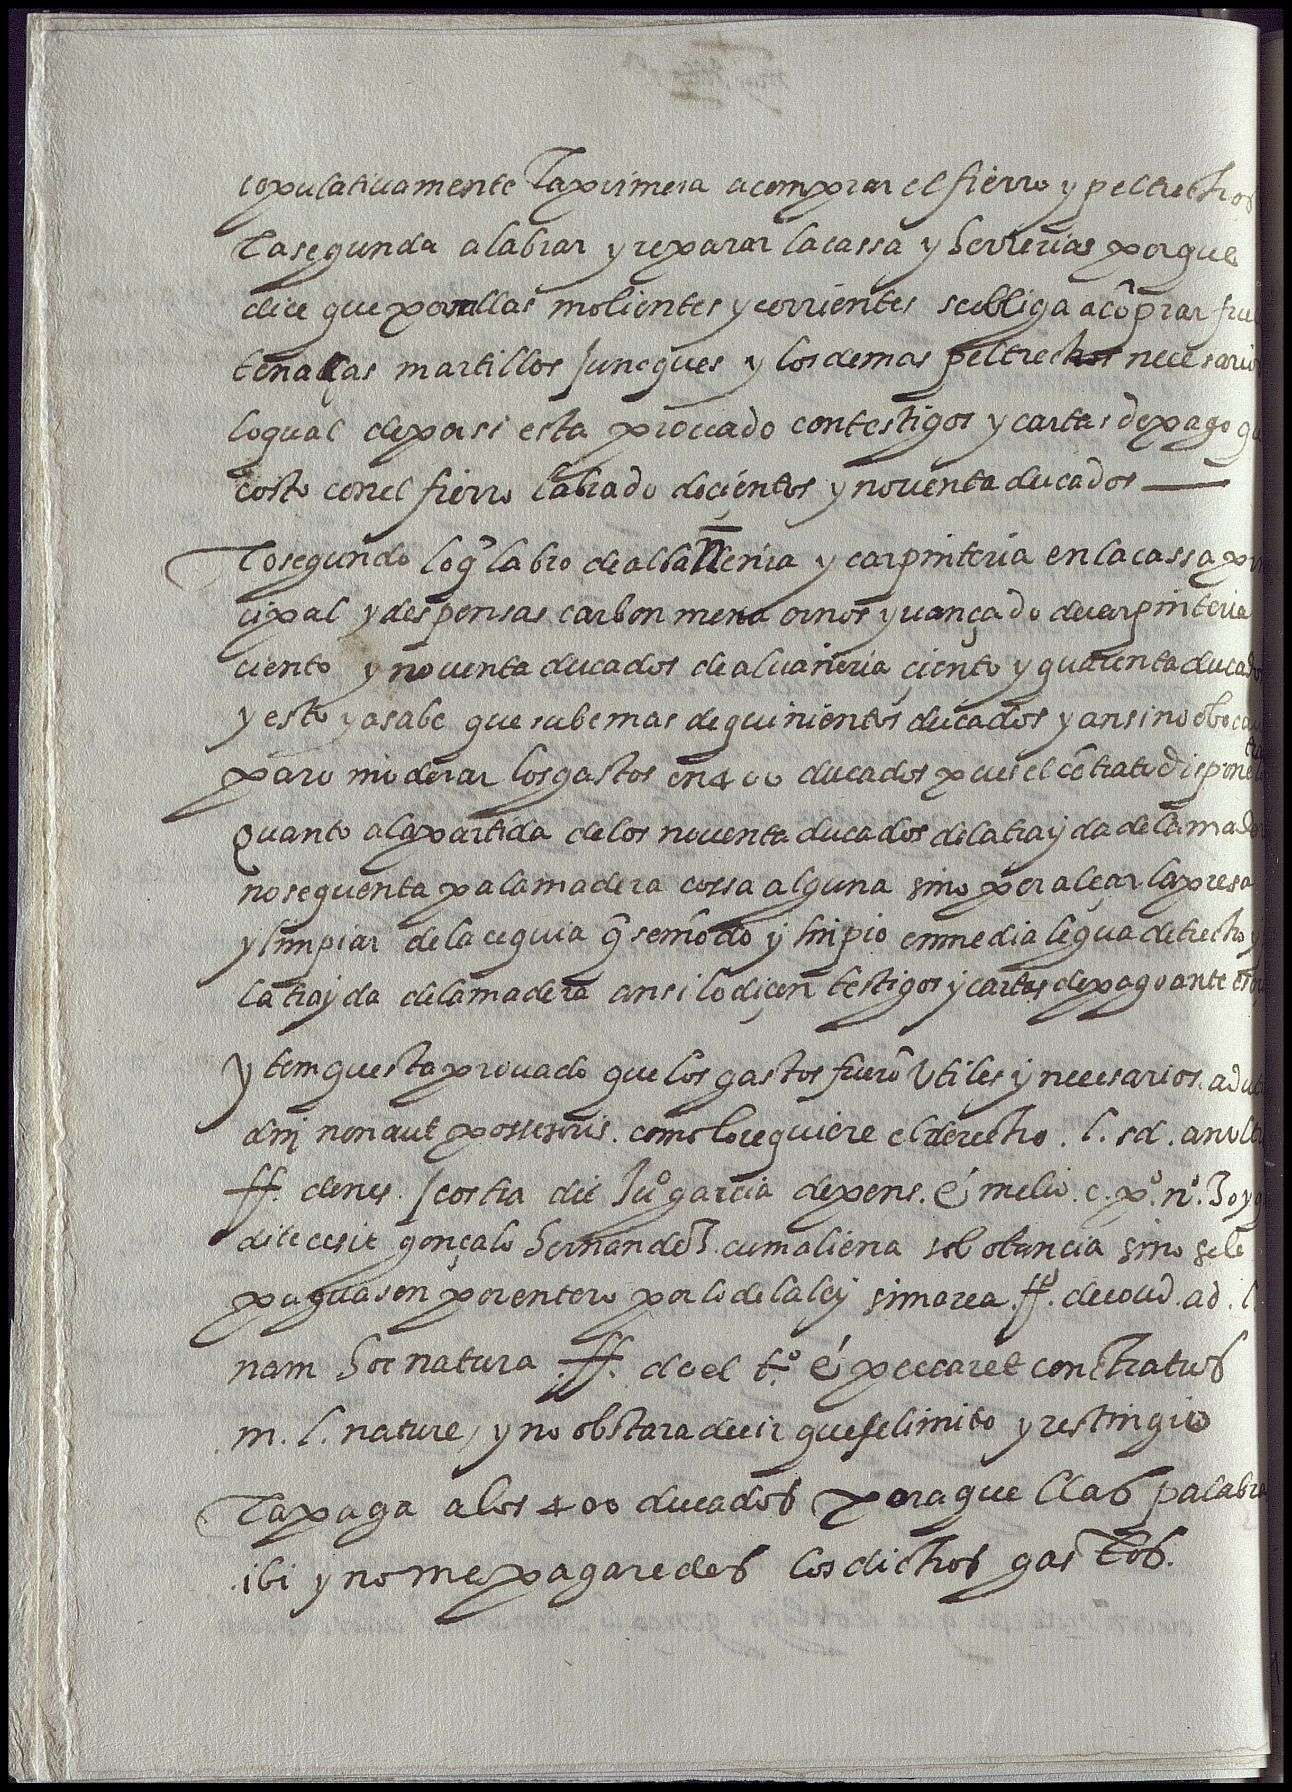 copulativamente La primera a comprar el fierro y peltrechos
La segunda a labrar y reparar la cassa y herrerias porque
dice que por ellas molientes y corrientes se obliga a cõprar
tenaças martillos junques y los demas peltrechos necesarios
lo qual de por si esta provado con testigos y cartas de pago
costo con el fierro labrado docientos y noventa ducados
Lo segundo lo q̃ labro de albañeria y carpinteria en la cassa
cipal y despensas carbon mena ornos y uançado de carpinteria
ciento y noventa ducados de alvañeria çiento y quarenta ducados
y esto ya sabe que sube mas de quinientos ducados y ansi no
para moderar los gastos en 400 ducados pues el cõtrato dispone
Quanto a la partida de los noventa ducados de la trayda de la madera
no se quenta pa la madera cossa alguna sino por alçar la presa
y limpiar de la cequia q̃ se mõdo y linpio en media legua de trecho y
la trayda de la madera ansi lo diçen testigos y cartas de pago ante
Ytem questa provado que los gastos fuerõ Utiles y necesarios. ad
dnj non aut possessoris. como lo requiere el derecho. l. sed. an
ff. de neg. gostia die Juº garcia de pens. & melio. c. pº. nº. 30 y
gonçalo hernandez. cum aliena sino se le
paguasen por entero por lo de la ley si marea ff. de cond. ad. l.
nam hoc natura ff. de el t.º & peccaret contratus
in. l. nature, y no obstara decir que se limito y restingio
La paga a los 400 ducados por aquellas palabras
ibi y no me pagaredes los dichos gastos.